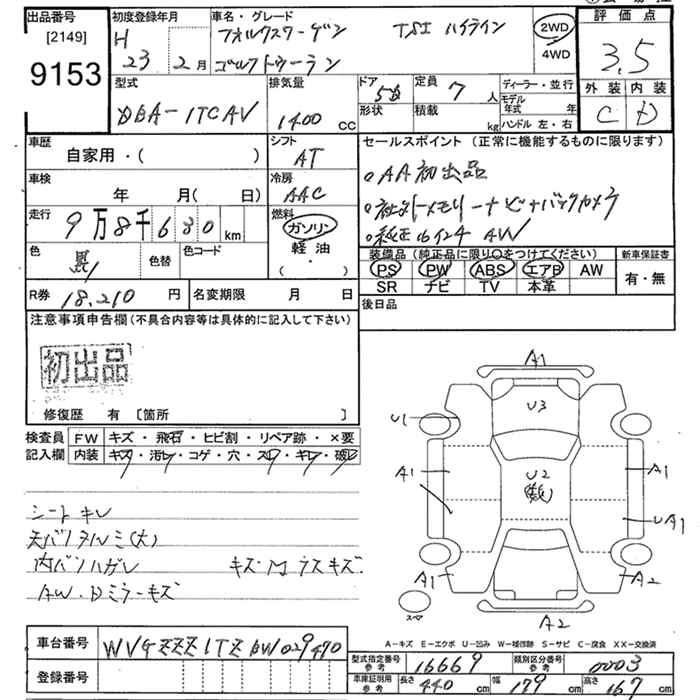 出品番号
[2149]
9153
初度登録年月
H
23 2月
車名・グレード
フォルクスワーゲン TSI ハイライン
ゴルフトゥーラン
2WD
4WD
評価点
3.5
外装 内装
C D
型式
DBA-1TCAV
排気量
1400 CC
ドア
5D
形状
定員 7 人
積載 kg
ディーラー・並行
モデル年式 年
ハンドル 左・右
車歴
自家用・( )
シフト
AT
車検
年 月( 日)
冷房
AAC
走行
9万8千630 km
燃料
ガソリン
軽油
( ・ )
色
黒
色替
色コード
R券 18,210 円
名変期限 月 日
セールスポイント (正常に機能するものに限ります)
・AA初出品
・社外メモリーナビ+バックカメラ
・純正16インチ AW
装備品 (純正品に限り○をつけてください)
PS PW ABS エアB AW
SR ナビ TV 本革
新車保証書
有・無
後日品
注意事項申告欄(不具合内容等は具体的に記入して下さい)
初出品
修復歴 有 [箇所 ]
検査員記入欄
FW キズ・飛石・ヒビ割・リペア跡・×要
内装 キズ・汚レ・コゲ・穴・スレ・キレ・破レ
シートキレ
天バリタルミ(大)
内バリハガレ キズ Mラスキズ
AW・Dミラーキズ
A1
U3
U1
A1
U2
A1
UA1
A1
A2
A2
スペア
A-キズ E-エクボ U-凹み W-補修跡 S-サビ C-腐食 XX-交換済
車台番号 WVGZZZ1TZBW029470
登録番号
型式指定番号 参考 16669
類別区分番号 参考 0003
車庫証明用 参考 長さ 440 cm 幅 179 cm 高さ 167 cm